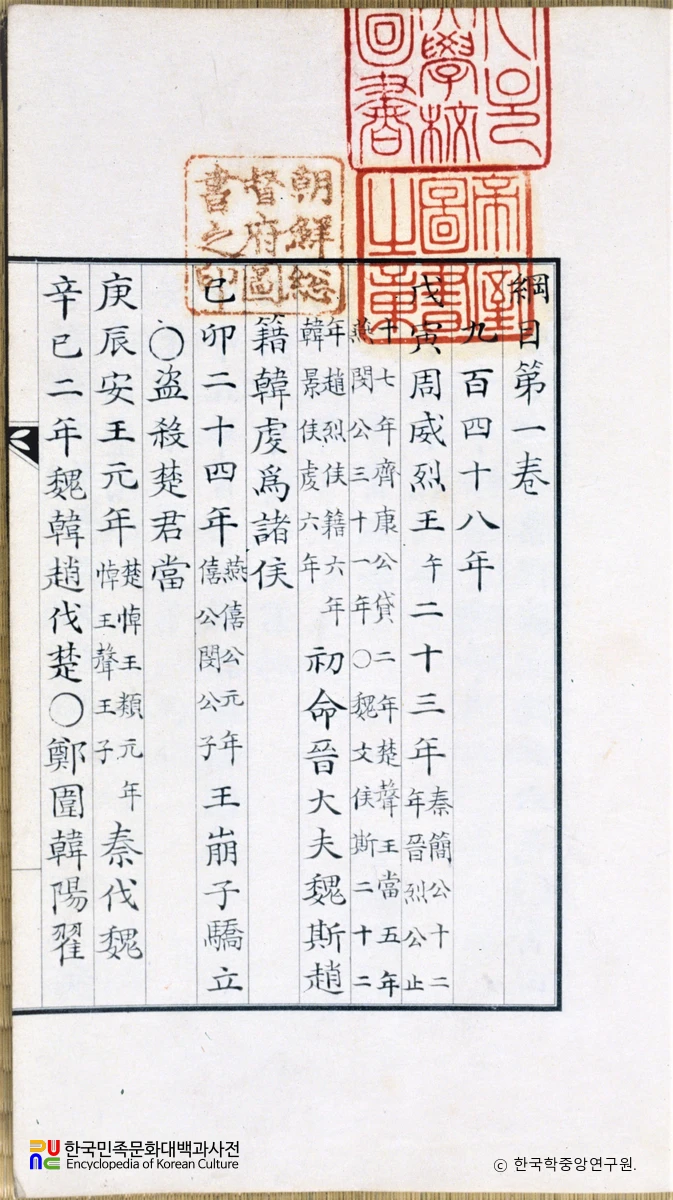 朝鮮総
督府圖
書之印
帝室
圖書
之章
綱目第一卷
九百四十八年
戊寅周威烈王午二十三年秦簡公十二
年晉烈公止
十七年齊康公貸二年楚聲王當五年
燕閔公三十一年〇魏文侯斯二十二
年趙烈侯籍六年
韓景侯虔六年
初命晉大夫魏斯趙
籍韓虔爲諸侯
己卯二十四年燕僖公元年
僖公閔公子
王崩子驕立
〇盜殺楚君當
庚辰安王元年楚悼王類元年
悼王聲王子
秦伐魏
辛巳二年魏韓趙伐楚〇鄭圍韓陽翟
한국민족문화대백과사전
Encyclopedia of Korean Culture
© 한국학중앙연구원.